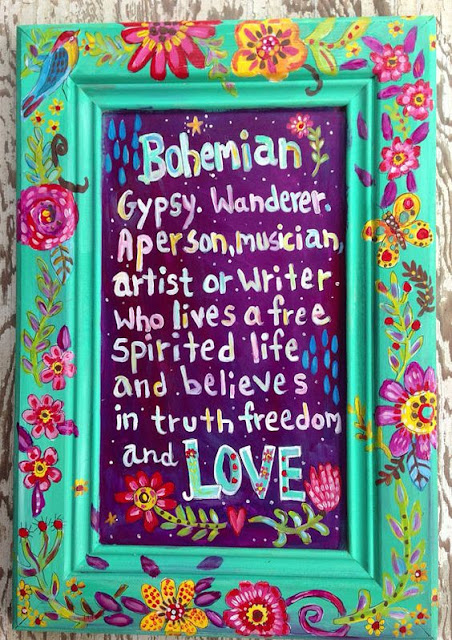 Bohemian
Gypsy. Wanderer.
A person, musician,
artist or writer.
who lives a free
spirited life
and believes
in truth freedom
and LOVE